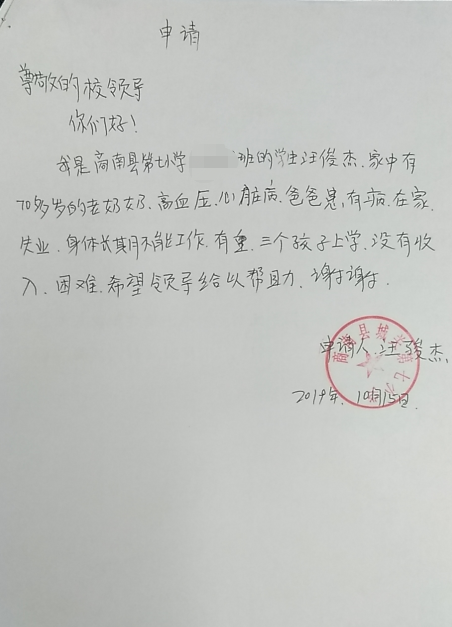 申请
尊敬的校领导
你们好！
我是商南县第七小学 班的学生汪俊杰.家中有
70多岁的老奶奶.高血压.心脏病.爸爸患,有病.在家.
失业.身体长其月不能工作.有重.三个孩子上学.没有收
入.困难.希望领导给以帮助.谢谢谢.
申请人:汪骏杰.
2019年.10月15日.
商南县城关第七小